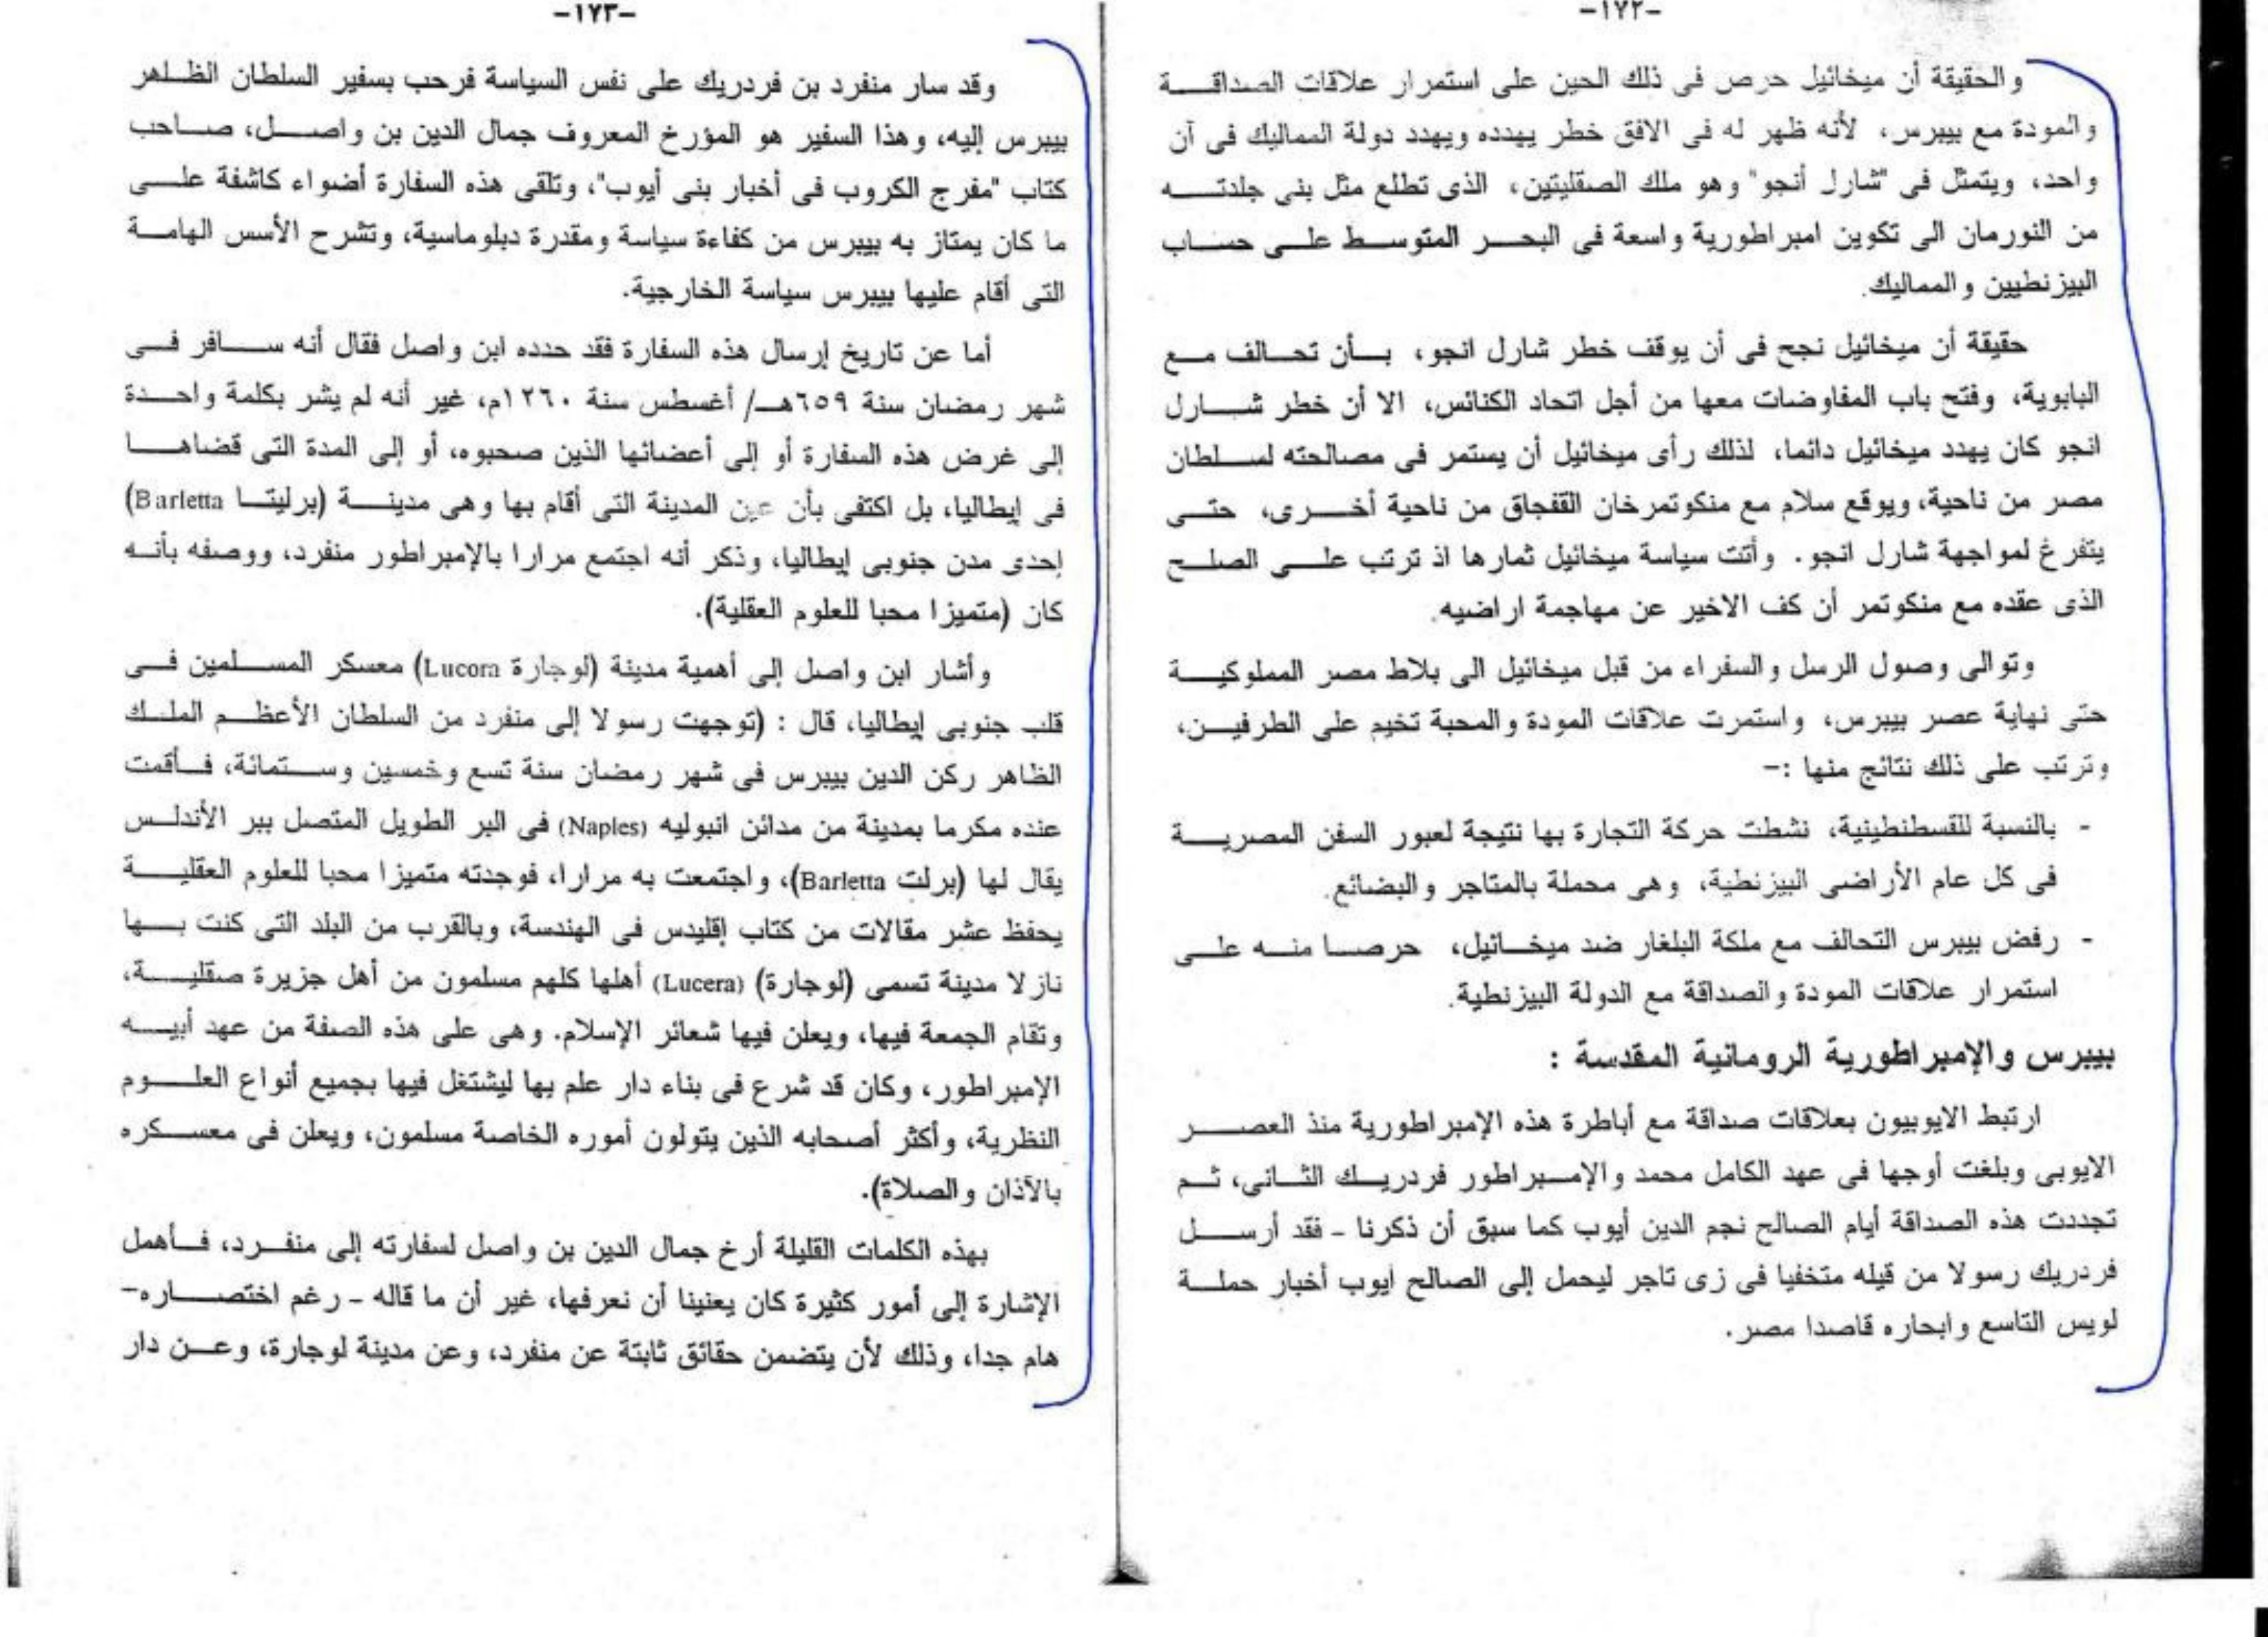 -١٧٢-
والحقيقة أن ميخائيل حرص فى ذلك الحين على استمرار علاقات الصداقة
والمودة مع بيبرس، لأنه ظهر له فى الافق خطر يهدده ويهدد دولة المماليك فى آن
واحد، ويتمثل فى "شارل أنجو" وهو ملك الصقليتين، الذى تطلع مثل بنى جلدته
من النورمان الى تكوين امبراطورية واسعة فى البحر المتوسط على حساب
البيزنطيين والمماليك.
حقيقة أن ميخائيل نجح فى أن يوقف خطر شارل انجو، بأن تحالف مع
البابوية، وفتح باب المفاوضات معها من أجل اتحاد الكنائس، الا أن خطر شارل
انجو كان يهدد ميخائيل دائما، لذلك رأى ميخائيل أن يستمر فى مصالحته لسلطان
مصر من ناحية، ويوقع سلام مع منكوتمرخان القفجاق من ناحية أخرى، حتى
يتفرغ لمواجهة شارل انجو. وأتت سياسة ميخائيل ثمارها اذ ترتب على الصلح
الذى عقده مع منكوتمر أن كف الاخير عن مهاجمة اراضيه.
وتوالى وصول الرسل والسفراء من قبل ميخائيل الى بلاط مصر المملوكية
حتى نهاية عصر بيبرس، واستمرت علاقات المودة والمحبة تخيم على الطرفين،
وترتب على ذلك نتائج منها :-
- بالنسبة للقسطنطينية، نشطت حركة التجارة بها نتيجة لعبور السفن المصرية
فى كل عام الأراضى البيزنطية، وهى محملة بالمتاجر والبضائع.
- رفض بيبرس التحالف مع ملكة البلغار ضد ميخائيل، حرصا منه على
استمرار علاقات المودة والصداقة مع الدولة البيزنطية.
بيبرس والإمبراطورية الرومانية المقدسة :
ارتبط الايوبيون بعلاقات صداقة مع أباطرة هذه الإمبراطورية منذ العصر
الايوبى وبلغت أوجها فى عهد الكامل محمد والإمبراطور فردريك الثانى، ثم
تجددت هذه الصداقة أيام الصالح نجم الدين أيوب كما سبق أن ذكرنا - فقد أرسل
فردريك رسولا من قبله متخفيا فى زى تاجر ليحمل إلى الصالح ايوب أخبار حملة
لويس التاسع وابحاره قاصدا مصر.
-١٧٣-
وقد سار منفرد بن فردريك على نفس السياسة فرحب بسفير السلطان الظاهر
بيبرس إليه، وهذا السفير هو المؤرخ المعروف جمال الدين بن واصل، صاحب
كتاب "مفرج الكروب فى أخبار بنى أيوب"، وتلقى هذه السفارة أضواء كاشفة على
ما كان يمتاز به بيبرس من كفاءة سياسة ومقدرة دبلوماسية، وتشرح الأسس الهامة
التى أقام عليها بيبرس سياسة الخارجية.
أما عن تاريخ إرسال هذه السفارة فقد حدده ابن واصل فقال أنه سافر فى
شهر رمضان سنة ٦٥٩هـ/ أغسطس سنة ١٢٦٠م، غير أنه لم يشر بكلمة واحدة
إلى غرض هذه السفارة أو إلى أعضائها الذين صحبوه، أو إلى المدة التى قضاها
فى إيطاليا، بل اكتفى بأن عين المدينة التى أقام بها وهى مدينة (برليتا Barletta)
إحدى مدن جنوبى إيطاليا، وذكر أنه اجتمع مرارا بالإمبراطور منفرد، ووصفه بأنه
كان (متميزا محبا للعلوم العقلية).
وأشار ابن واصل إلى أهمية مدينة (لوجارة Lucora) معسكر المسلمين فى
قلب جنوبى إيطاليا، قال : (توجهت رسولا إلى منفرد من السلطان الأعظم الملك
الظاهر ركن الدين بيبرس فى شهر رمضان سنة تسع وخمسين وستمائة، فأقمت
عنده مكرما بمدينة من مدائن انبوليه (Naples) فى البر الطويل المتصل ببر الأندلس
يقال لها (برلت Barletta)، واجتمعت به مرارا، فوجدته متميزا محبا للعلوم العقلية
يحفظ عشر مقالات من كتاب إقليدس فى الهندسة، وبالقرب من البلد التى كنت بها
نازلا مدينة تسمى (لوجارة) (Lucera) أهلها كلهم مسلمون من أهل جزيرة صقلية،
وتقام الجمعة فيها، ويعلن فيها شعائر الإسلام. وهى على هذه الصفة من عهد أبيه
الإمبراطور، وكان قد شرع فى بناء دار علم بها ليشتغل فيها بجميع أنواع العلوم
النظرية، وأكثر أصحابه الذين يتولون أموره الخاصة مسلمون، ويعلن فى معسكره
بالآذان والصلاة).
بهذه الكلمات القليلة أرخ جمال الدين بن واصل لسفارته إلى منفرد، فأهمل
الإشارة إلى أمور كثيرة كان يعنينا أن نعرفها، غير أن ما قاله - رغم اختصاره-
هام جدا، وذلك لأن يتضمن حقائق ثابتة عن منفرد، وعن مدينة لوجارة، وعن دار